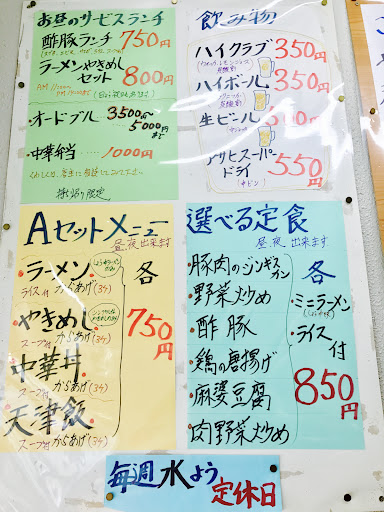 お昼のサービスランチ
酢豚ランチ 750円
ラーメンやきめし
セット 800円
・オードブル 3500から
5000円まで
・中華弁当 1000円
持ち帰り限定
飲み物
ハイクラブ 350円
ハイボール 350円
生ビール 350円
アサヒスーパー
ドライ 550円
Aセットメニュー
昼、夜 出来ます
・ラーメン
ライス付 からあげ(3ケ)
・やきめし
スープ付 からあげ(3ケ)
・中華丼
スープ付 からあげ(3ケ)
・天津飯
スープ付 からあげ(3ケ)
各
750円
選べる定食
昼、夜 出来ます
・豚肉のジンギスカン
・野菜炒め
・酢豚
・鶏の唐揚げ
・麻婆豆腐
・肉野菜炒め
各
・ミニラーメン
・ライス
付
850円
毎週水よう
定休日